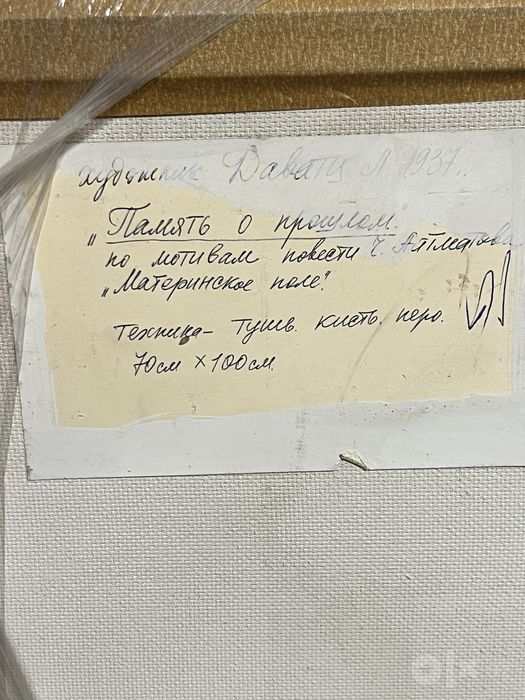 художник Даватц Л 1937.
„Память о прошлом.
по мотивам повести Ч. Айтматова
„Материнское поле".
техника – тушь. кисть. перо.
70см х 100см.
OLX